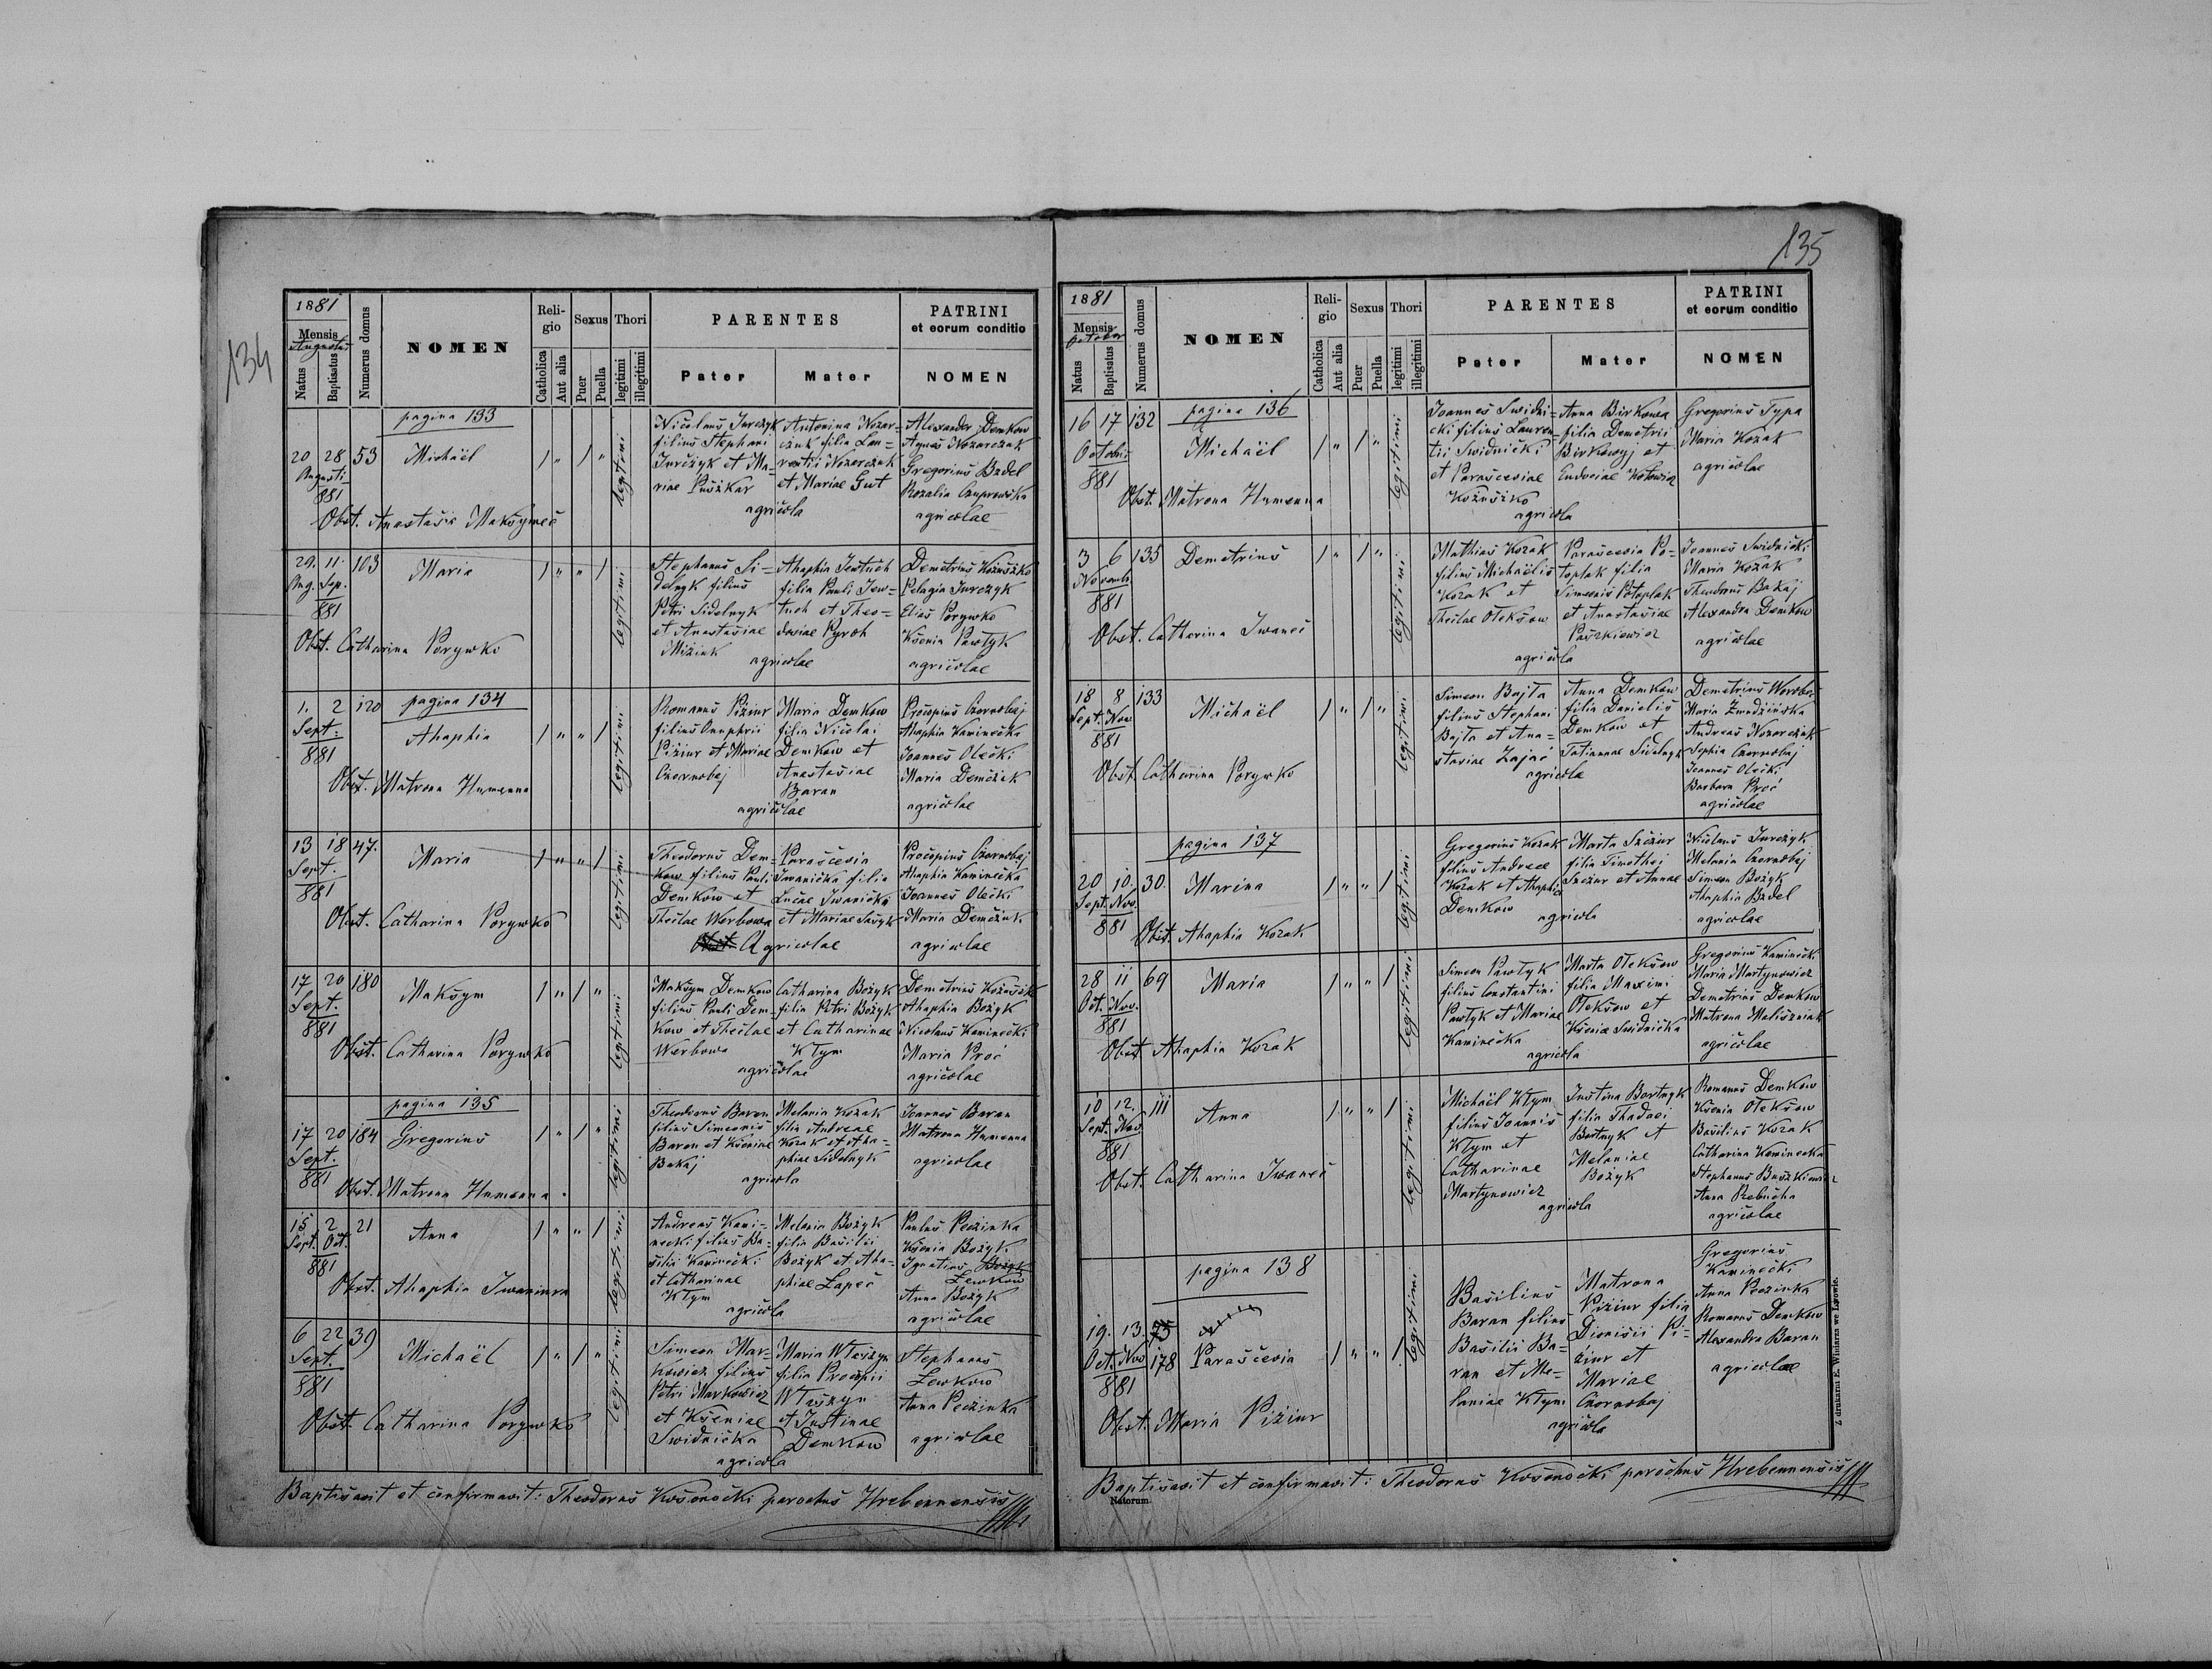 134
1881
Mensis
Augustus
Natus
Baptisatus
Numerus domus
NOMEN
Reli-
gio
Catholica
Aut alia
Sexus
Puer
Puella
Thori
legitimi
illegitimi
PARENTES
Pater
Mater
PATRINI
et eorum conditio
NOMEN
pagina 133
20 28 53 Michaël
Augusti
881
legitimi
Nicolaus Jurczyk
filius Stephani
Jurczyk et Ma-
riae Puszkar
Antonina Kozar-
czuk filia Lau-
rentii Kozarczuk
et Mariae Gut
agricola
Alexander Demkow
Agnes Kozarczuk
Gregorius Bzdel
Rozalia Czuprowska
agricolae
Obst. Anastasia Maksymec
29. 11. 103 Maria
Aug. Sep.
881
legitimi
Stephanus Si-
delnyk filius
Petri Sidelnyk
et Anastasiae
Miziuk
Ahaphia Jewtuch
filia Pauli Jew-
tuch et Theo-
dosiae Pyroh
agricolae
Demetrius Kozuszko
Pelagia Jurczyk
Elias Porywko
Ksenia Pawłyk
agricolae
Obst. Catharina Porywko
pagina 134
1. 2 120
Sept.
881
Ahaphia
legitimi
Romanus Piziur
filius Onuphrii
Piziur et Mariae
Czornobaj
Maria Demkow
filia Nicolai
Demkow et
Anastasiae
Baran
agricolae
Procopius Czornobaj
Ahaphia Kaminecka
Joannes Olecki
Maria Demczuk
agricolae
Obst. Matrona Humenna
13 18 47. Maria
Sept.
881
legitimi
Theodorus Dem-
kow filius Pauli
Demkow et
Theclae Werbowa
Parascevia
Iwanicka filia
Lucae Iwanicki
et Mariae Sawyk
Agricolae
Procopius Czornobaj
Ahaphia Kaminecka
Joannes Olecki
Maria Demczuk
agricolae
Obst. Catharina Porywko
17 20 180 Maksym
Sept.
881
legitimi
Maksym Demkow
filius Pauli Dem-
kow et Theclae
Werbowa
Catharina Bozyk
filia Petri Bozyk
et Catharinae
Kłym
agricolae
Demetrius Kozuszko
Ahaphia Bozyk
Nicolaus Kaminecki
Maria Proc
agricolae
Obst. Catharina Porywko
pagina 135
17 20 184 Gregorius
Sept.
881
legitimi
Theodorus Baran
filius Simeonis
Baran et Kseniae
Bakaj
Melania Kozak
filia Andreae
Kozak et Aha-
phiae Sidelnyk
agricola
Joannes Baran
Matrona Humenna
agricolae
Obst. Matrona Humenna.
15 2 21 Anna
Sept. Oct.
881
legitimi
Andreas Kami-
necki filius Ba-
silii Kaminecki
et Catharinae
Kłym
Melania Bozyk
filia Basilii
Bozyk et Aha-
phiae Łapec
agricola
Paulus Peczinka
Ksenia Bozyk
Ignatius Bozyk
Lewkow
Anna Bozyk
agricolae
Obst. Ahaphia
6 22 39 Michaël
Sept.
881
legitimi
Simeon Mar-
kowicz filius
Petri Markowicz
et Kseniae
Swidnicka
Maria
filia Procopii
et Justinae
Demkow
agricola
Stephanus
Lewkow
Anna Peczinka
agricolae
Obst. Catharina Porywko
Baptisavit et confirmavit: Theodorus Kosonocki parochus Hrebennensis
135
1881
Mensis
October
Natus
Baptisatus
Numerus domus
NOMEN
Reli-
gio
Catholica
Aut alia
Sexus
Puer
Puella
Thori
legitimi
illegitimi
PARENTES
Pater
Mater
PATRINI
et eorum conditio
NOMEN
pagina 136
16 17 132 Michaël
Octobris
881
legitimi
Joannes Swidni-
cki filius Lauren-
tii Swidnicki
et Parasceviae
Kozuszko
Anna Birkowa
filia Demetrii
Birkowyj et
Eudociae Kotowicz
agricola
Gregorius Typa
Maria Kozak
agricolae
Obst. Matrona Humenna
3 6 135 Demetrius
Novemb.
881
legitimi
Mathias Kozak
filius Michaëlis
Kozak et
Theclae Oleksow
Parascevia Po-
toplak filia
Simeonis Potoplak
et Anastasiae
Paszkiewicz
agricola
Joannes Swidnicki
Maria Kozak
Theodorus Bakaj
Alexandra Demkow
agricolae
Obst. Catharina Iwanec
18 8 133 Michaël
Sept. Nov.
881
legitimi
Simeon Bajta
filius Stephani
Bajta et Ana-
stasiae Zając
Anna Demkow
filia Danielis
Demkow et
Tatiannae Sidelnyk
agricolae
Demetrius
Maria
Andreas Kozarczuk
Sophia Czornobaj
Joannes Olecki
Barbara Proc
agricolae
Obst. Catharina Porywko
pagina 137
20 10. 30. Marina
Sept. Nov.
881
legitimi
Gregorius Kozak
filius Andreae
Kozak et Ahaphiae
Demkow
Marta Szczur
filia Timothei
Szczur et Annae
agricola
Nicolaus Jurczyk
Melania Czornobaj
Simeon Bozyk
Ahaphia Bzdel
agricolae
Obst. Ahaphia Kozak
28 11 69 Maria
Oct. Nov.
881
legitimi
Simeon Pawłyk
filius Constantini
Pawłyk et Mariae
Kaminecka
Marta Oleksow
filia Maximi
Oleksow et
Kseniae Swidnicka
agricola
Gregorius Kaminecki
Maria Martynowicz
Demetrius Demkow
Matrona Maliszniak
agricolae
Obst. Ahaphia Kozak
10 12. 111 Anna
Sept. Nov.
881
legitimi
Michaël Kłym
filius Joannis
Kłym et
Catharinae
Martynowicz
Justina Bortnyk
filia Thadaei
Bortnyk et
Melaniae
Bozyk
agricola
Romanus Demkow
Ksenia Oleksow
Basilius Kozak
Catharina Kaminecka
Stephanus
Anna
agricolae
Obst. Catharina Iwanec
pagina 138
19. 13. 75
Oct. Nov. 178 Parascevia
881
legitimi
Basilius
Baran filius
Basilii Ba-
ran et Me-
laniae Kłym
Matrona
Piziur filia
Dionisii Pi-
ziur et
Mariae
Czornobaj
agricola
Gregorius
Kaminecki
Anna Peczinka
Romanus Demkow
Alexandra Baran
agricolae
Obst. Maria Piziur
Baptisavit et confirmavit: Theodorus Kosonocki parochus Hrebennensis
Natorum.
Z drukarni E. Winiarza we Lwowie.